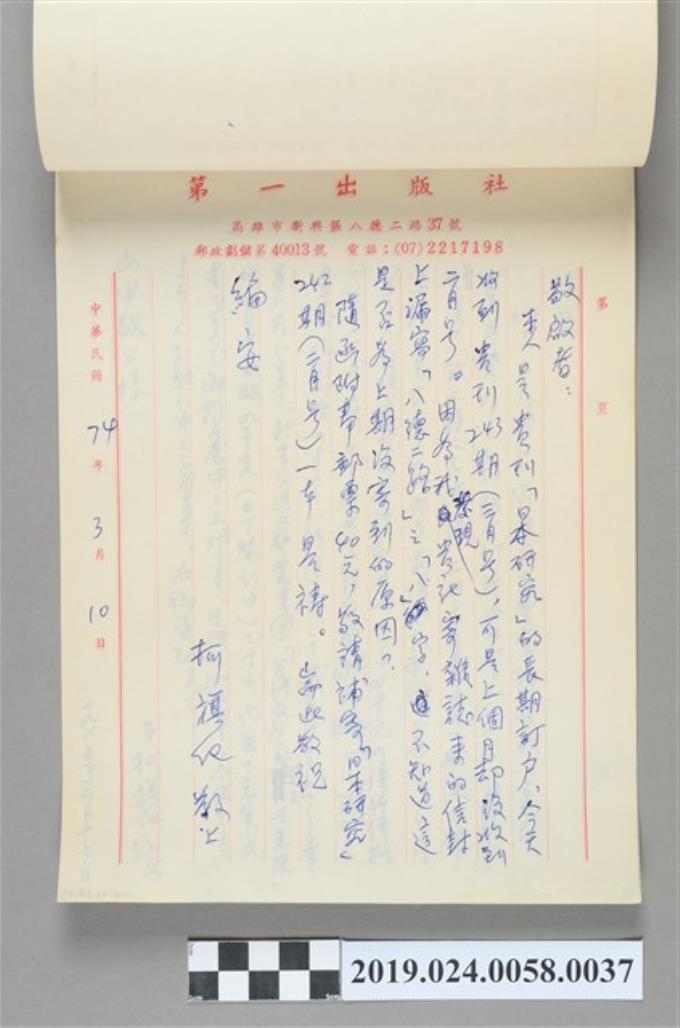 第一出版社
高雄市新興區八德二路37號
郵政劃儲第40013號 電話:(07)2217198
第 頁
敬啟者:
夫是貴刊「日本研究」的長期訂户,今天
收到貴刊243期(三月号),可是上個月却沒收到
二月号。因為我發現貴社寄雜誌來的信封
上漏寫「八德二路」之「八」字,不知道這
是否為上期沒寄到的原因?
隨函附郵票40元,敬請補寄「日本研究」
242期(二月号)一本是禱。耑此敬祝
編安
柯旗化敬上
中華民國74年3月10日
2019.024.0058.0037